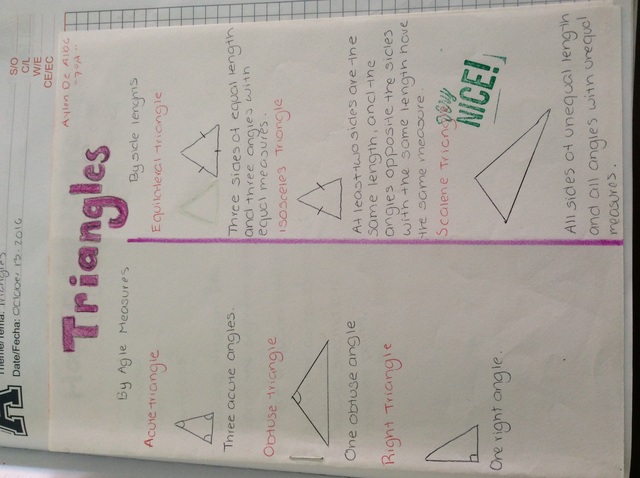 S/O
C/L
W/E
CE/EC
Date/Fecha: October 13, 2016
Triangles
By Agle Measures
Acute triangle
Three acute angles.
Obtuse triangle
One obtuse angle
Right Triangle
One right angle.
By side lengths
Equilateral triangle
Three sides of equal length
and three angles with
equal measures.
Isosceles Triangle
At least two sides are the
same length, and the
angles opposite the sides
with the same length have
the same measure.
Scalene Triangle
Very
NICE!
All sides of unequal length
and all angles with unequal
measures.